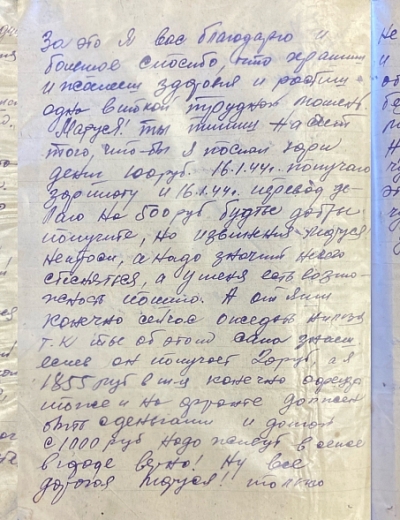 За это я вас благодарю и
большое спасибо, что храните
и желаем здоровья и
одна в такой трудный момент.
Маруся! ты пишеш на счет
того, что-бы я послал
денег 100 руб. 16.1.44г. получаю
зарплоту и 16.1.44г. перевод де-
лаю на 500 руб будте добры
получите, но извини Маруся
не проси, а надо значит нечего
стесняться, а у меня есть возмо-
жность пошлю. А от
конечно сейчас ожидать нельзя
т.к ты об этом сама знаеш
если он получает руб а я
1855 руб в м-я конечно
тоже и на фронте должен
быть с деньгами и домой
с 1000 руб надо
в годе верно! Ну все
дорогая Маруся! только